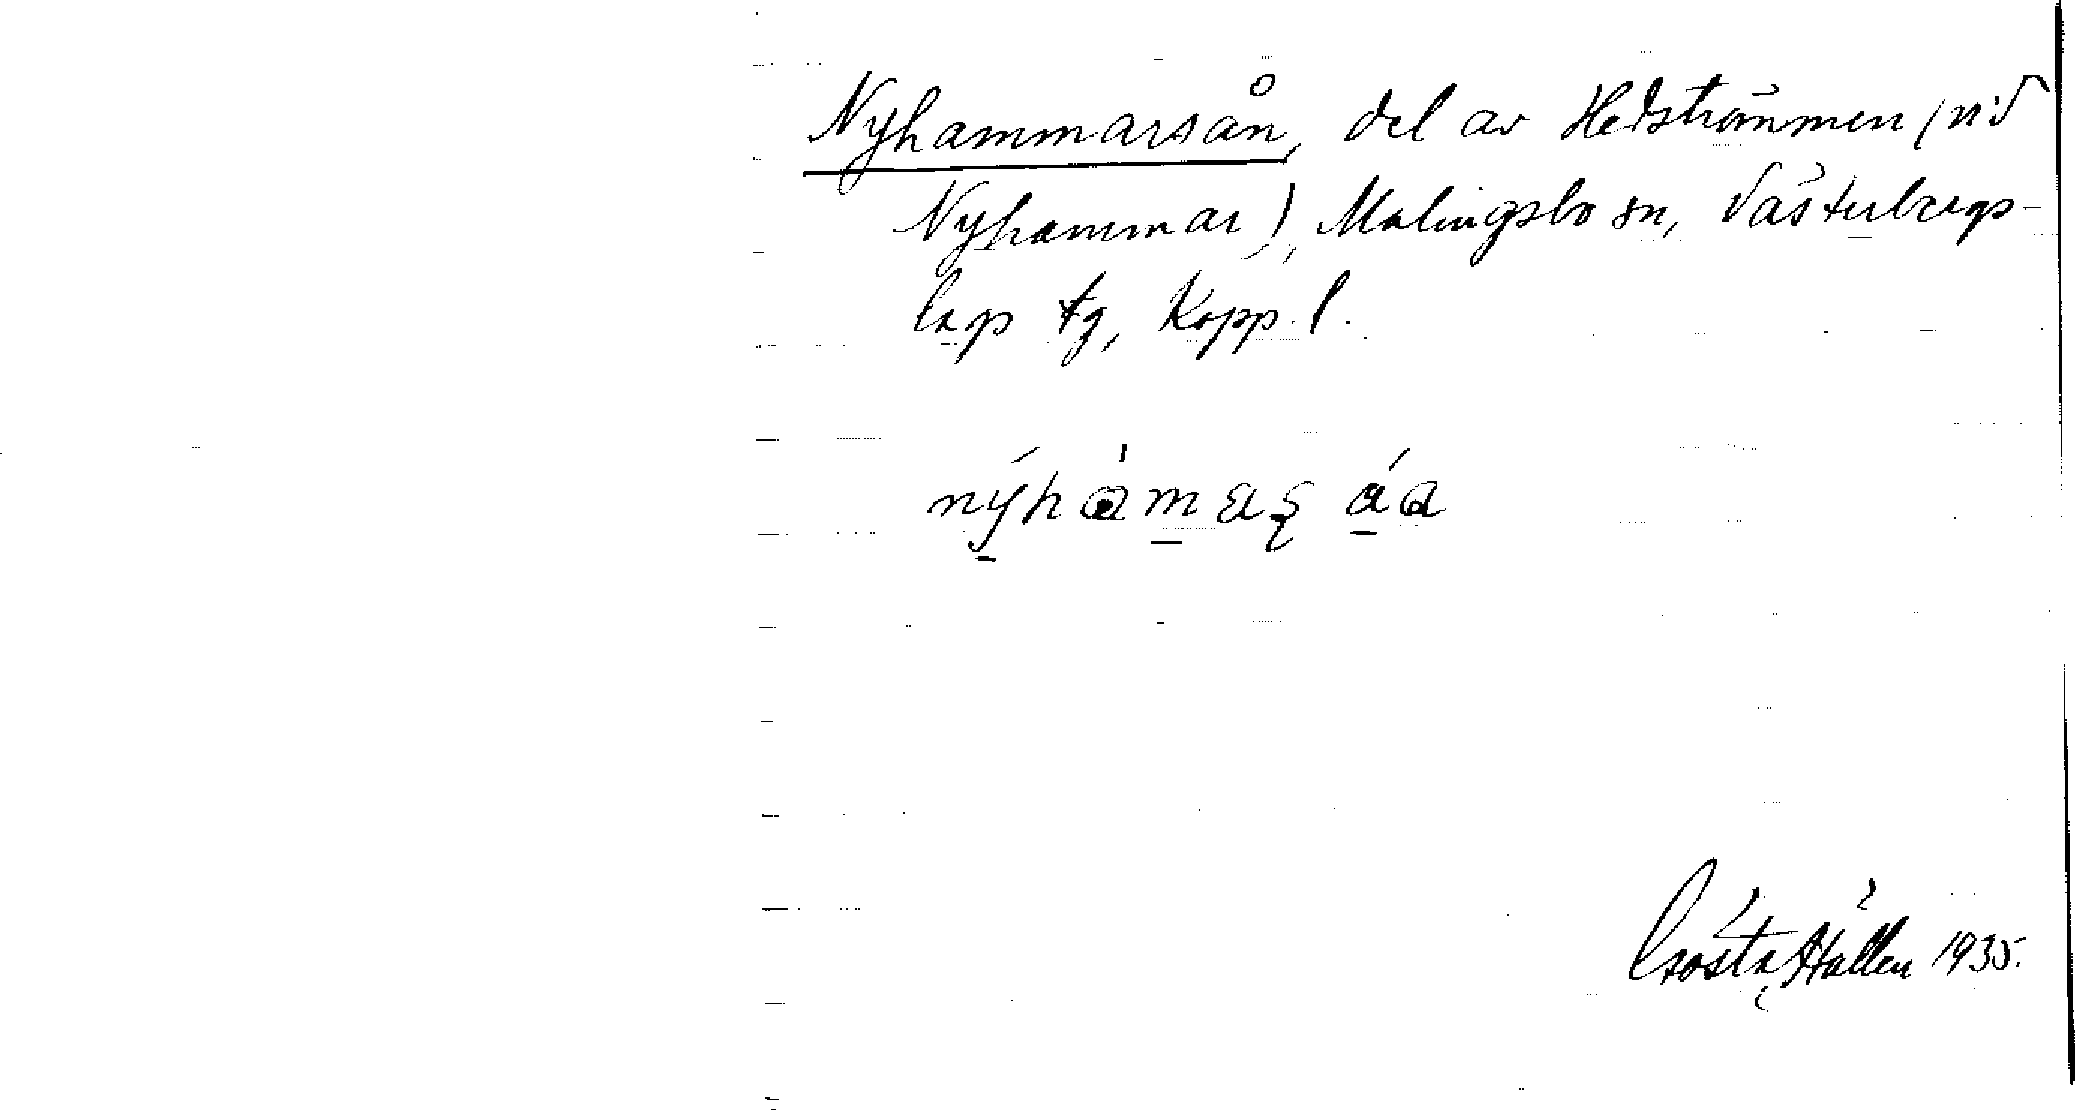 Nyhammarsån, del av Hedströmmen (vid
Nyhammar), Malingsbo sn, Västerbergs-
lags tg, Kopp. l.
nýhàmaʂ áa
Gösta Hallén 1935.